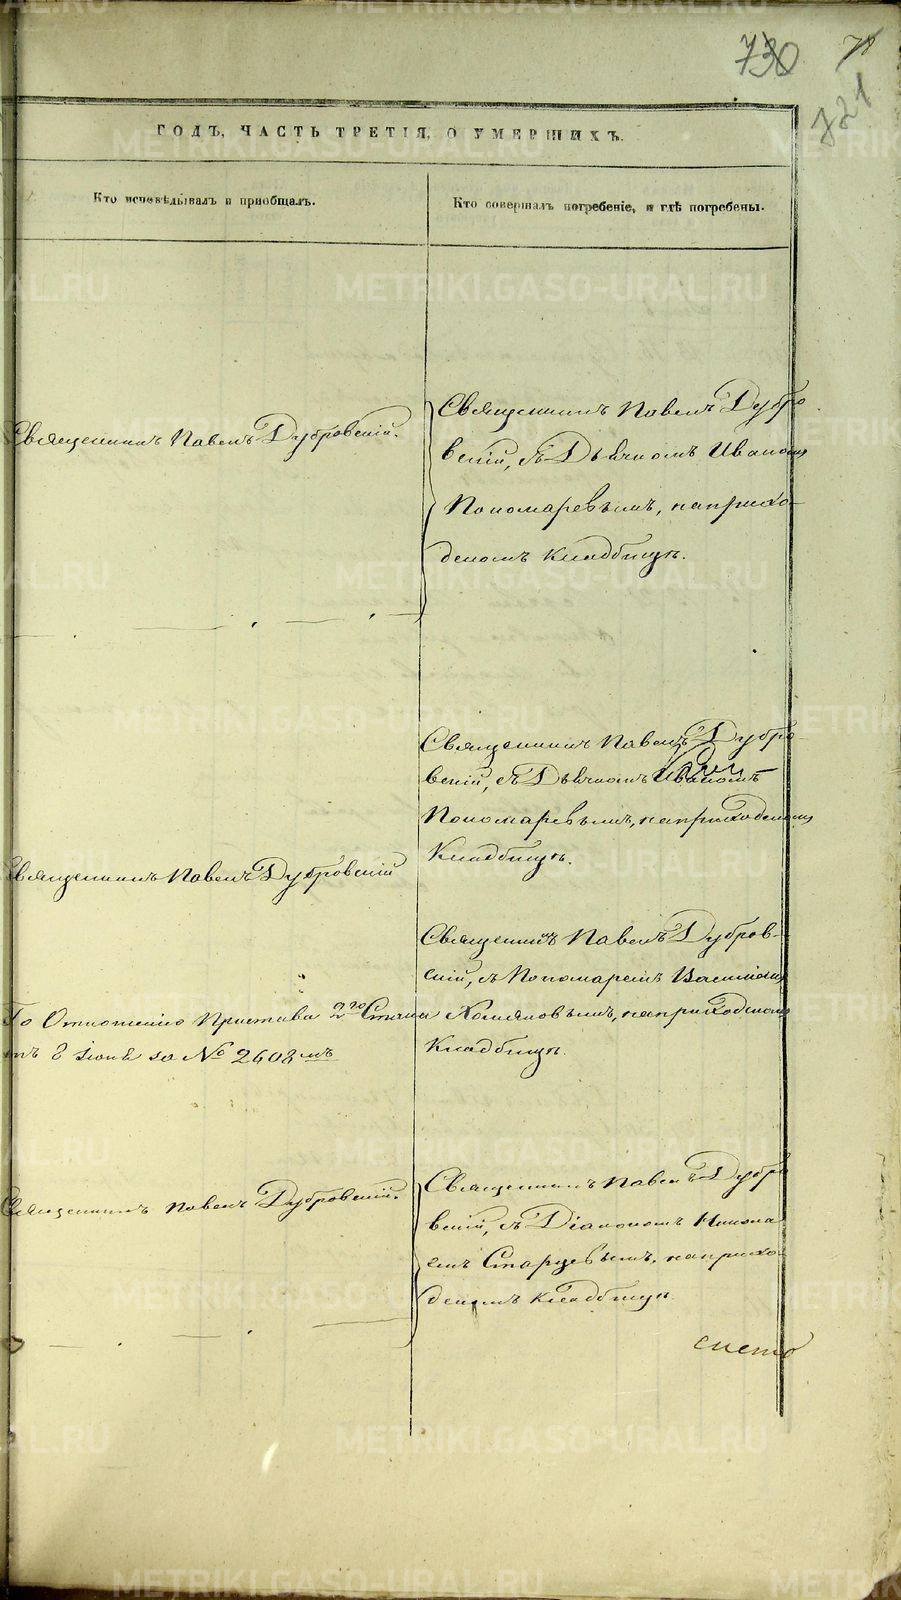 730
78
721
ГОДЪ, ЧАСТЬ ТРЕТІЯ, О УМЕРШИХЪ.
Кто исповѣдывалъ и пріобщалъ.
Кто совершалъ погребеніе, и гдѣ погребены.
Священникъ Павелъ Дубровскій.
Священникъ Павелъ Дубро
вскій, съ Дьячкомъ Иваномъ
Пономаревымъ, на прихо-
дскомъ кладбищѣ.
Священникъ Павелъ Дубро-
вскій, съ Дьячкомъ Иваномъ
Пономаревымъ, на приходскомъ
Кладбищѣ.
Священникъ Павелъ Дубровскій
Священникъ Павелъ Дубров-
скій, съ Пономаремъ Василіемъ
Хомяковымъ, на приходскомъ
Кладбищѣ.
По Отношенію Пристава 2го Стана
отъ 8 іюня за № 2608мъ
Священникъ Павелъ Дубровскій.
Священникъ Павелъ Дубро
вскій, съ Діакономъ Никола
емъ Старцевымъ, на прихо-
дскомъ кладбищѣ.
METRIKI.GASO-URAL.RU